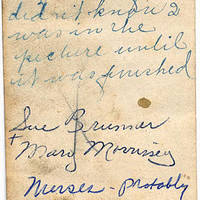 didn't know I
was in the
picture until
it was finished
Sue Brumar
+ Mary Morrissey
Nurses - probably